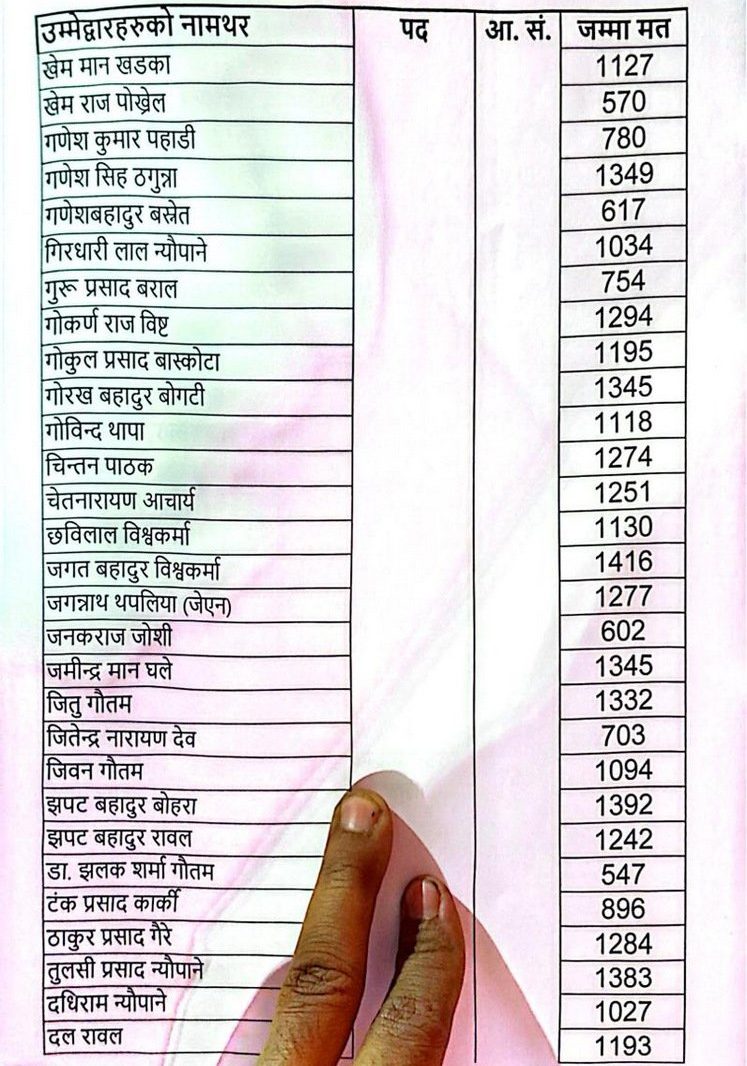 उम्मेद्वारहरुको नामथर पद आ. सं. जम्मा मत
खेम मान खडका 1127
खेम राज पोख्रेल 570
गणेश कुमार पहाडी 780
गणेश सिह ठगुन्ना 1349
गणेशबहादुर बस्नेत 617
गिरधारी लाल न्यौपाने 1034
गुरू प्रसाद बराल 754
गोकर्ण राज विष्ट 1294
गोकुल प्रसाद बास्कोटा 1195
गोरख बहादुर बोगटी 1345
गोविन्द थापा 1118
चिन्तन पाठक 1274
चेतनारायण आचार्य 1251
छविलाल विश्वकर्मा 1130
जगत बहादुर विश्वकर्मा 1416
जगन्नाथ थपलिया (जेएन) 1277
जनकराज जोशी 602
जमीन्द्र मान घले 1345
जितु गौतम 1332
जितेन्द्र नारायण देव 703
जिवन गौतम 1094
झपट बहादुर बोहरा 1392
झपट बहादुर रावल 1242
डा. झलक शर्मा गौतम 547
टंक प्रसाद कार्की 896
ठाकुर प्रसाद गैरे 1284
तुलसी प्रसाद न्यौपाने 1383
दधिराम न्यौपाने 1027
दल रावल 1193